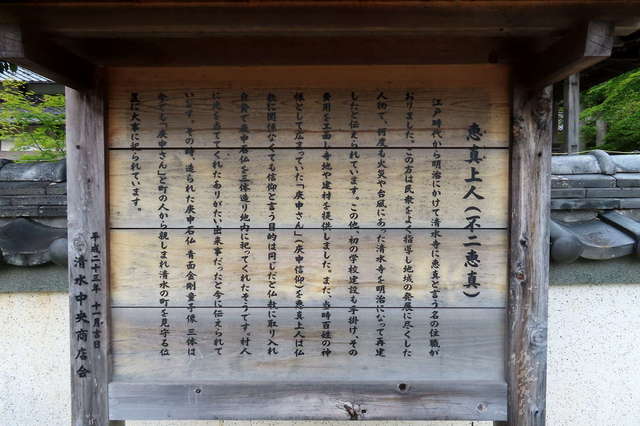 恵真上人(不二恵真)
江戸時代から明治にかけて清水寺に恵真と言う名の住職が
おりました。この方は民衆をよく指導し地域の発展に尽くした
人物で、何度も火災や台風にあった清水寺を明治になって再建
したと伝えられています。この他、初の学校建設も手掛け、その
費用を工面し寺地や建材を提供しました。また、当時百姓の神
様として広まっていた「庚申さん」(庚申信仰)を恵真上人は仏
教に関係なくても信仰と言う目的は同じだと仏教に取り入れ
自費で庚申石仏を三体造り地内に祀ってくれたそうです。村人
に光を当ててくれたありがたい出来事だったと今に伝えられて
います。その時、造られた庚申石仏 青面金剛童子像 三体は
今でも「庚申さん」と町の人から親しまれ清水の町を見守る位
置に大事に祀られています。
平成二十三年 十一月吉日
清水中央商店会